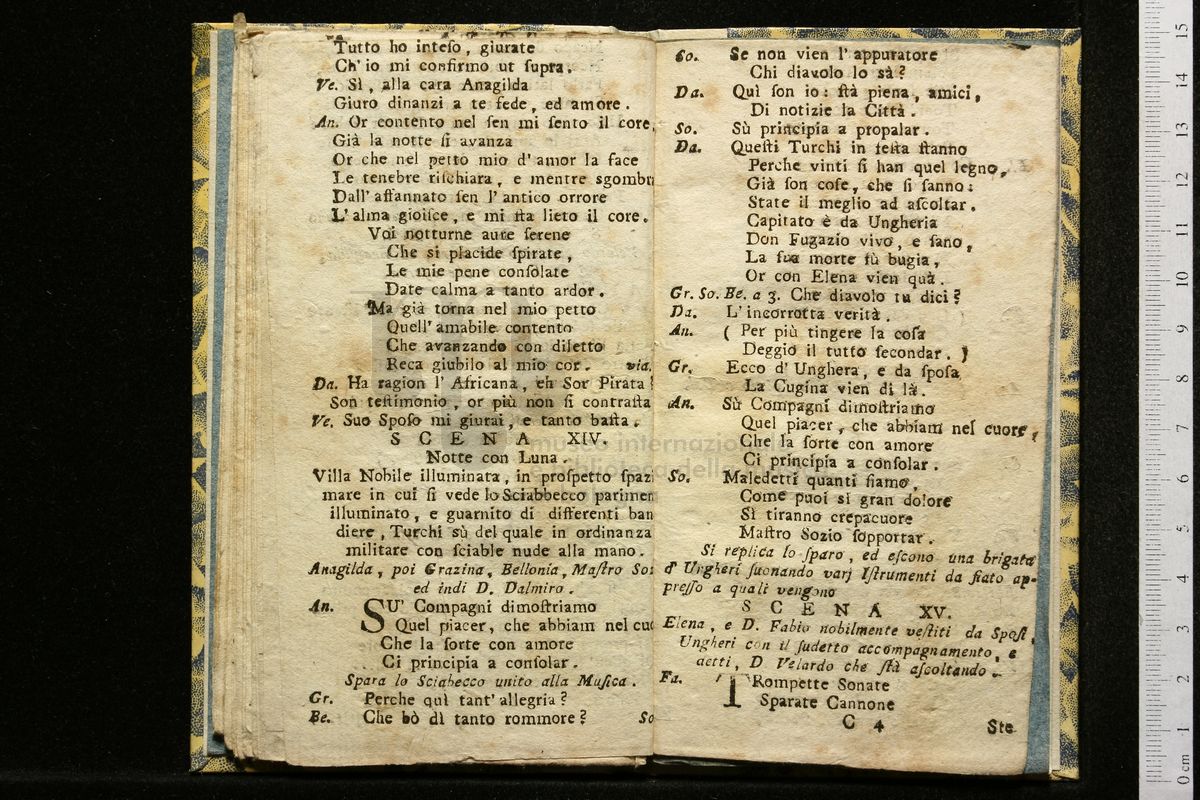 Tutto ho inteſo, giurate
Ch' io mi confirmo ut ſupra.
Ve. Sì, alla cara Anagilda
Giuro dinanzi a te fede, ed amore.
An. Or contento nel ſen mi ſento il core,
Già la notte ſi avanza
Or che nel petto mio d' amor la face
Le tenebre riſchiara, e mentre sgombr
Dall' affannato ſen l' antico orrore
L' alma gioiſce, e mi ſta lieto il core.
Voi notturne aure ſerene
Che si placide ſpirate,
Le mie pene conſolate
Date calma a tanto ardor.
Ma già torna nel mio petto
Quell' amabile contento
Che avanzando con diletto
Reca giubilo al mio cor. via.
Da. Ha ragion l' Africana, eh Sor Pirata!
Son teſtimonio, or più non ſi contraſta
Ve. Suo Spoſo mi giurai, e tanto baſta.
SCENA XIV.
Notte con Luna.
Villa Nobile illuminata, in proſpetto ſpazi
mare in cui ſi vede lo Sciabbecco parimen
illuminato, e guarnito di differenti ban
diere, Turchi sù del quale in ordinanza
militare con ſciable nude alla mano.
Anagilda, poi Grazina, Bellonia, Maſtro So:
ed indi D. Dalmiro.
An. SU' Compagni dimoſtriamo
Quel piacer, che abbiam nel cuo
Che la ſorte con amore
Ci principia a conſolar.
Spara lo Sciabecco unito alla Muſica.
Gr. Perche quì tant' allegria?
Be. Che bò dì tanto rommore? So
So. Se non vien l' appuratore
Chi diavolo lo sà?
Da. Quì ſon io: ſtà piena, amici,
Di notizie la Città.
So. Sù principia a propalar.
Da. Queſti Turchi in teſta ſtanno
Perche vinti ſi han quel legno,
Già ſon coſe, che ſi ſanno:
State il meglio ad aſcoltar.
Capitato è da Ungheria
Don Fugazio vivo, e ſano,
La ſua morte fù bugia,
Or con Elena vien quà.
Gr. So. Be. a 3. Che diavolo tu dici?
Da. L' incorrotta verità.
An. ( Per più tingere la coſa
Deggio il tutto ſecondar. )
Gr. Ecco d' Unghera, e da ſpoſa
La Cugina vien di là.
An. Sù Compagni dimoſtriamo
Quel piacer, che abbiam nel cuore,
Che la ſorte con amore
Ci principia a conſolar.
So. Maledetti quanti ſiamo,
Come puoi sì gran dolore
Sì tiranno crepacuore
Maſtro Sozio ſopportar.
Si replica lo ſparo, ed eſcono una brigata
d' Ungheri ſuonando varj Iſtrumenti da fiato ap-
preſſo a quali vengono
SCENA XV.
Elena, e D. Fabio nobilmente veſtiti da Spoſi,
Ungheri con il ſudetto accompagnamento, e
detti, D Velardo che ſtà aſcoltando.
Fa. TRompette Sonate
Sparate Cannone
C 4 Ste